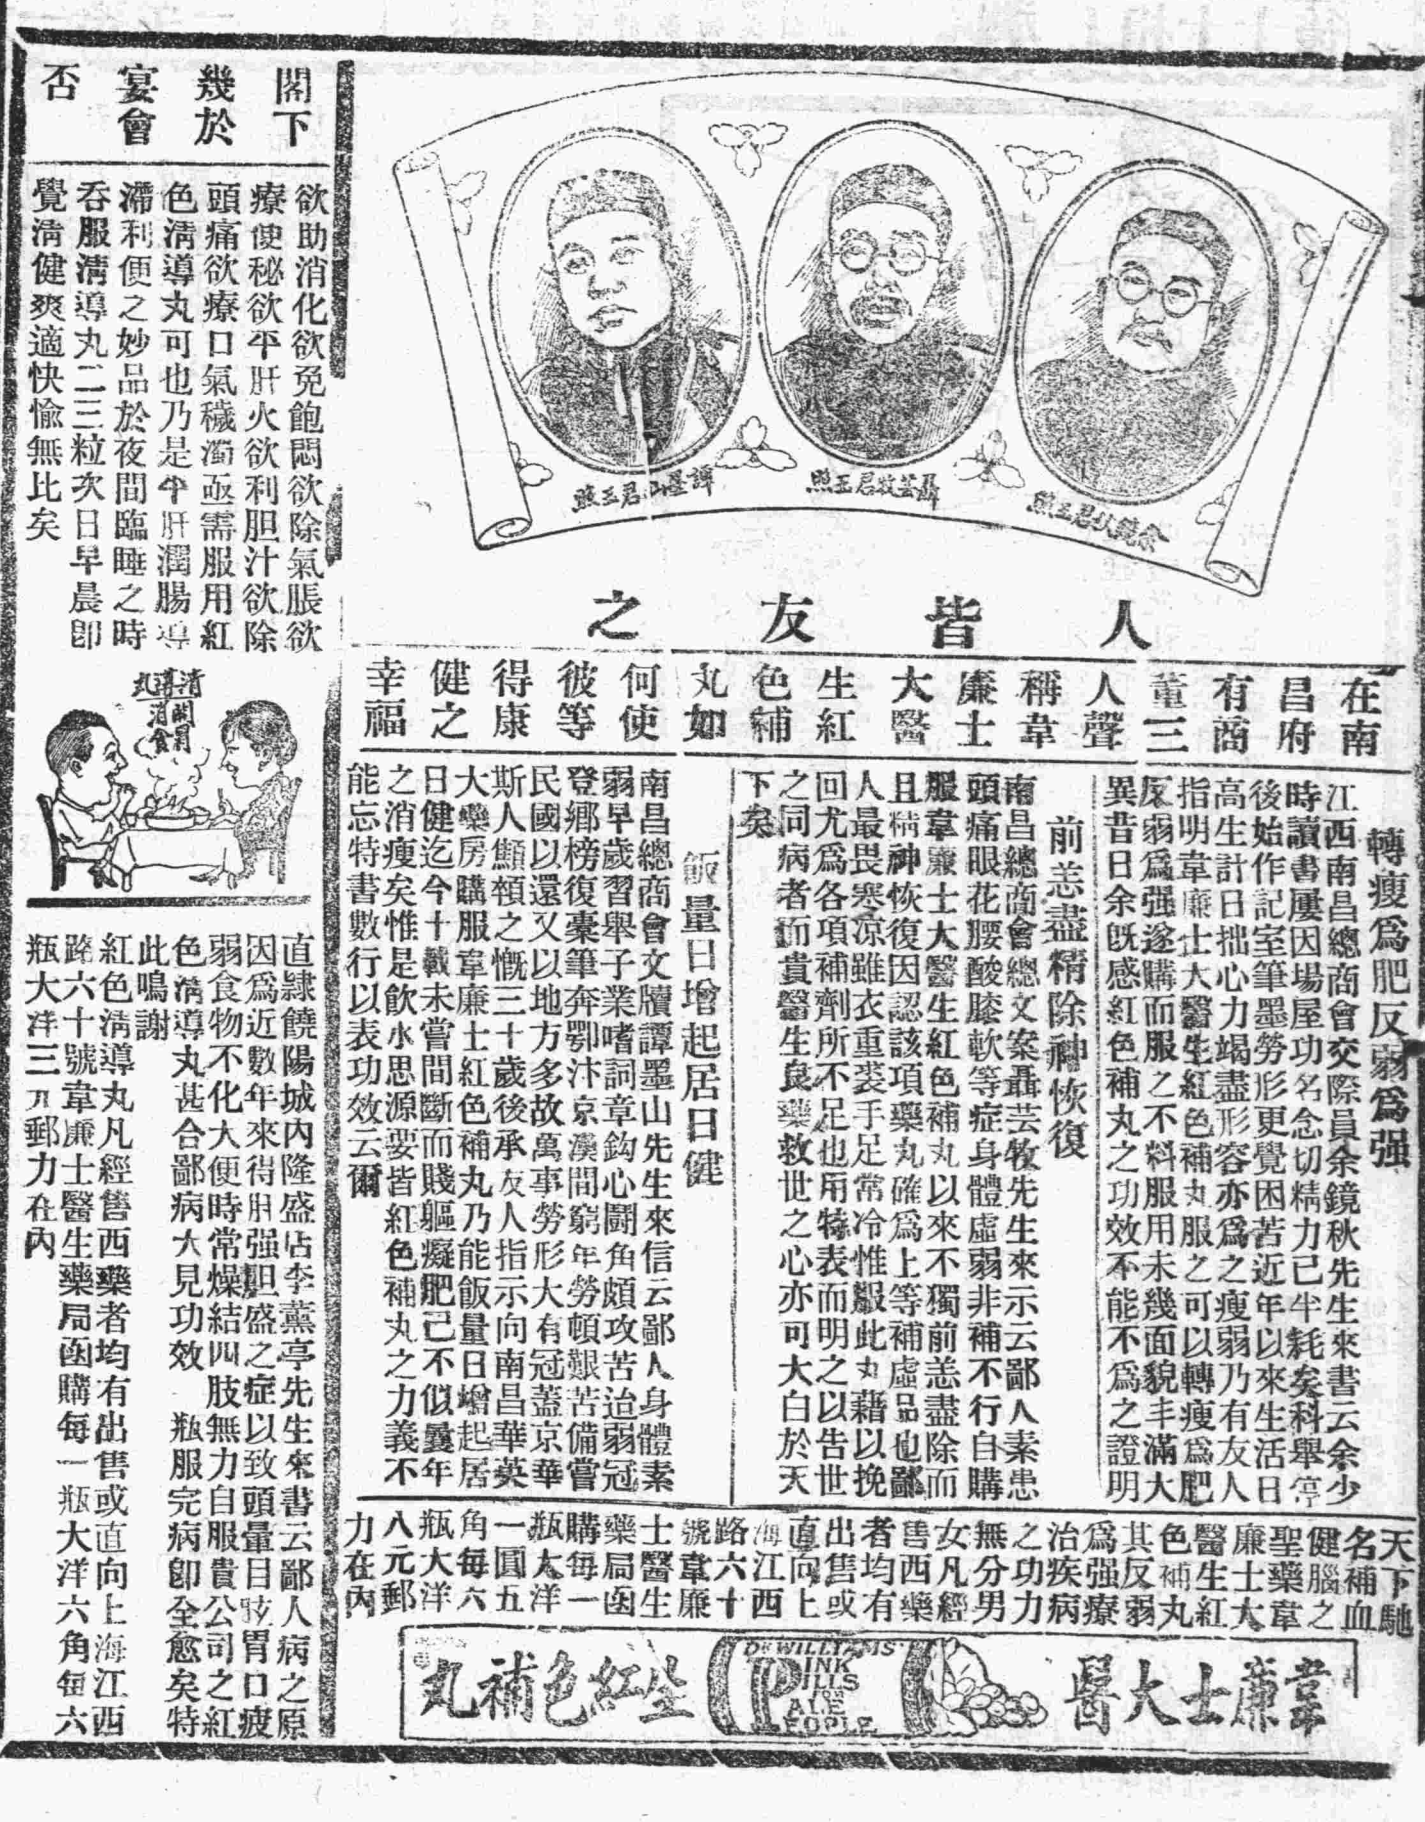 余鏡秋君玉照
聶芸牧君玉照
譚墨山君玉照
人皆友之
在南
昌府
有商
董三
人聲
稱韋
廉士
大醫
生紅
色補
丸如
何使
彼等
得康
健之
幸福
轉瘦爲肥反弱爲强
江西南昌總商會交際員余鏡秋先生來書云余少
時讀書屢因場屋功名念切精力已半耗矣科舉停
後始作記室筆墨勞形更覺困苦近年以來生活日
高生計日拙心力竭盡形容亦爲之瘦弱乃有友人
指明韋廉士大醫生紅色補丸服之可以轉瘦爲肥
反弱爲强遂購而服之不料服用未幾面貌丰滿大
異昔日余旣感紅色補丸之功效不能不爲之證明
前恙盡精除神恢復
南昌總商會總文案聶芸牧先生來示云鄙人素患
頭痛眼花腰酸膝軟等症身體虛弱非補不行自購
服韋廉士大醫生紅色補丸以來不獨前恙盡除而
且精神恢復因認該項藥丸確爲上等補虛品也鄙
人最畏寒凉雖衣重裘手足常冷惟服此丸藉以挽
回尤爲各項補劑所不足也用特表而明之以告世
之同病者而貴醫生良藥救世之心亦可大白於天
下矣
飯量日增起居日健
南昌總商會文牘譚墨山先生來信云鄙人身體素
弱早歲習舉子業嗜詞章鈎心鬭角頗攻苦迨弱冠
登鄉榜復橐筆奔鄂汴京漢間窮年勞頓艱苦備嘗
民國以還又以地方多故萬事勞形大有冠蓋京華
斯人顦顇之慨三十歲後承友人指示向南昌華英
大藥房購服韋廉士紅色補丸乃能飯量日增起居
日健迄今十載未嘗間斷而賤軀癡肥已不似曩年
之消瘦矣惟是飲水思源要皆紅色補丸之力義不
能忘特書數行以表功效云爾
天下馳
名補血
健腦之
聖藥韋
廉士大
醫生紅
色補丸
其反弱
爲强療
治疾病
之功力
無分男
女凡經
售西藥
者均有
出售或
直向上
海江西
路六十
號韋廉
士醫生
藥局函
購每一
瓶大洋
一圓五
角每六
瓶大洋
八元郵
力在內
韋廉士大醫
DR WILLIAMS'
PINK
PILLS
FOR
PALE
PEOPLE
生紅色補丸
閣下
幾於
宴會
否
欲助消化欲免飽悶欲除氣脹欲
療便秘欲平肝火欲利胆汁欲除
頭痛欲療口氣穢濁亟需服用紅
色淸導丸可也乃是平肝潤腸導
滯利便之妙品於夜間臨睡之時
吞服淸導丸二三粒次日早晨卽
覺淸健爽適快愉無比矣
清導丸
開胃
消食
直隸饒陽城內隆盛店李薰亭先生來書云鄙人病之原
因爲近數年來得肝强胆盛之症以致頭暈目眩胃口疲
弱食物不化大便時常燥結四肢無力自服貴公司之紅
色淸導丸甚合鄙病大見功效 瓶服完病卽全愈矣特
此鳴謝
紅色淸導丸凡經售西藥者均有出售或直向上海江西
路六十號韋廉士醫生藥局函購每一瓶大洋六角每六
瓶大洋三元郵力在內